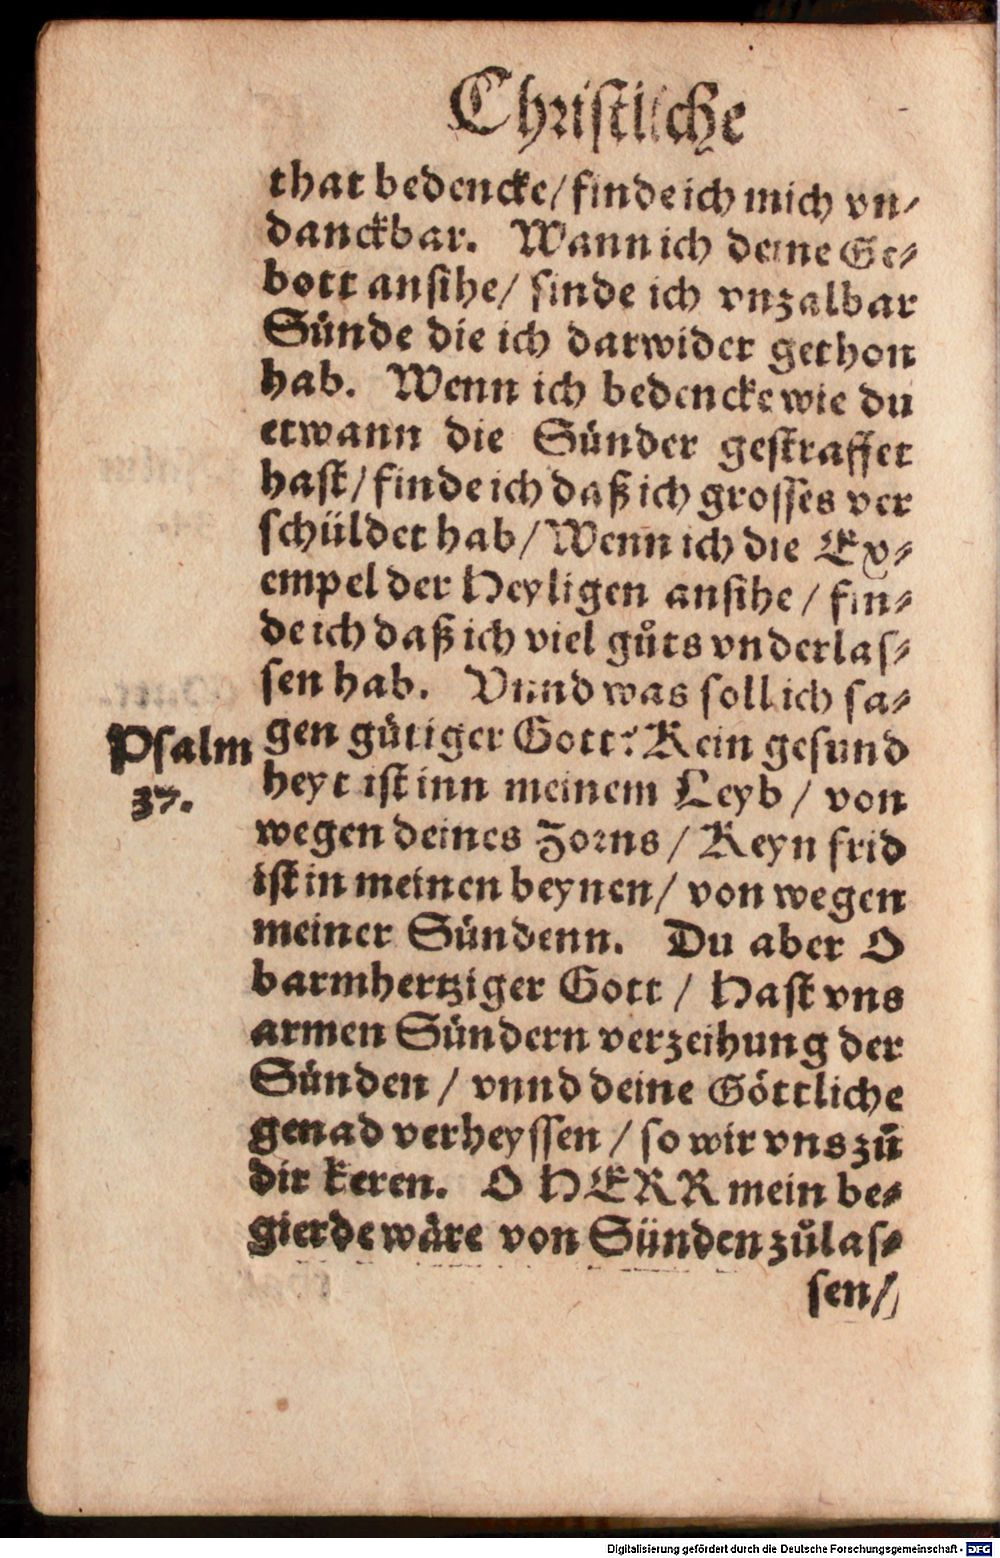 Christliche
that bedencke/ finde ich mich vn-
danckbar. Wann ich deine Ge-
bott ansihe/ finde ich vnzalbar
Sünde die ich darwider gethon
hab. Wenn ich bedencke wie du
etwann die Sünder gestraffet
hast/ finde ich daß ich grosses ver
schüldet hab/ Wenn ich die Ex-
empel der Heyligen ansihe/ fin-
de ich daß ich viel gůts vnderlas-
sen hab. Vnnd was soll ich sa-
Psalm 37.
gen gütiger Gott? Kein gesund
heyt ist inn meinem Leyb/ von
wegen deines Zorns/ Keyn frid
ist in meinen beynen/ von wegen
meiner Sündenn. Du aber O
barmhertziger Gott/ Hast vns
armen Sündern verzeihung der
Sünden/ vnnd deine Göttliche
genad verheyssen/ so wir vns zů
dir keren. O HERR mein be-
gierde wäre von Sünden zůlas-
sen/
Digitalisierung gefördert durch die Deutsche Forschungsgemeinschaft - DFG